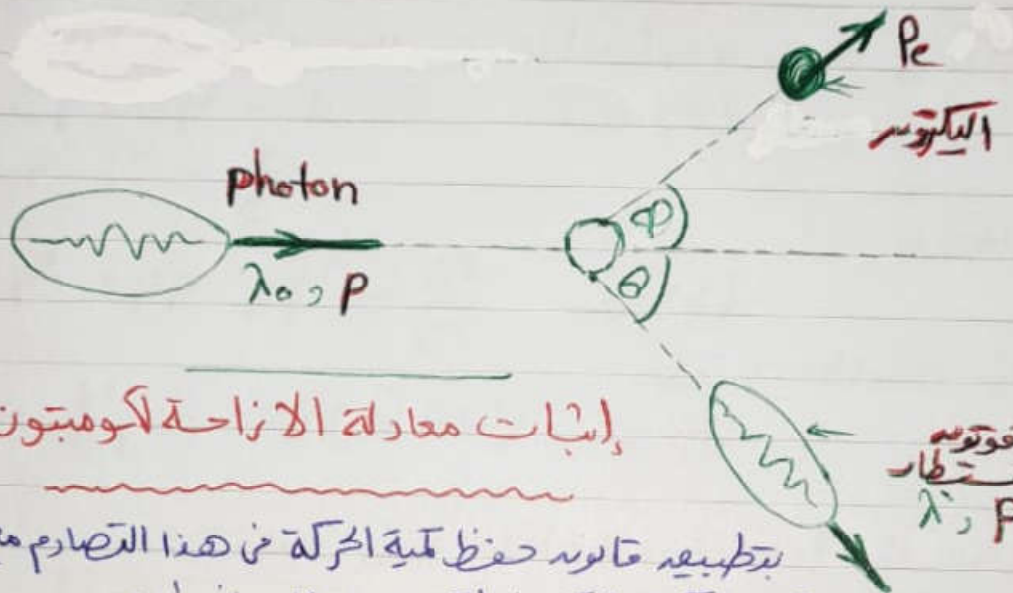 Pe
اليكترون
photon
λ₀ , P
φ
θ
إثبات معادلة الازاحة لكومبتون
فوتون
λ' , P
بتطبيق قانون حفظ كمية الحركة في هذا التصادم